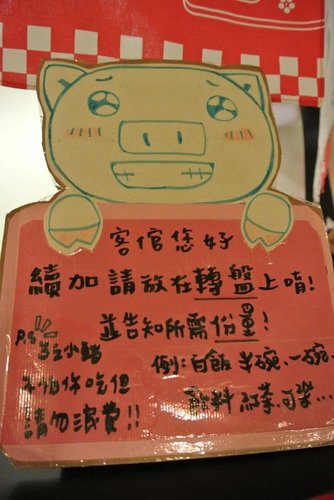 客倌您好
續加請放在轉盤上唷!
並告知所需份量!
例:白飯 半碗、一碗
飲料 紅茶、可樂...
P.S
當心小豬
不怕你吃但
請勿浪費!!